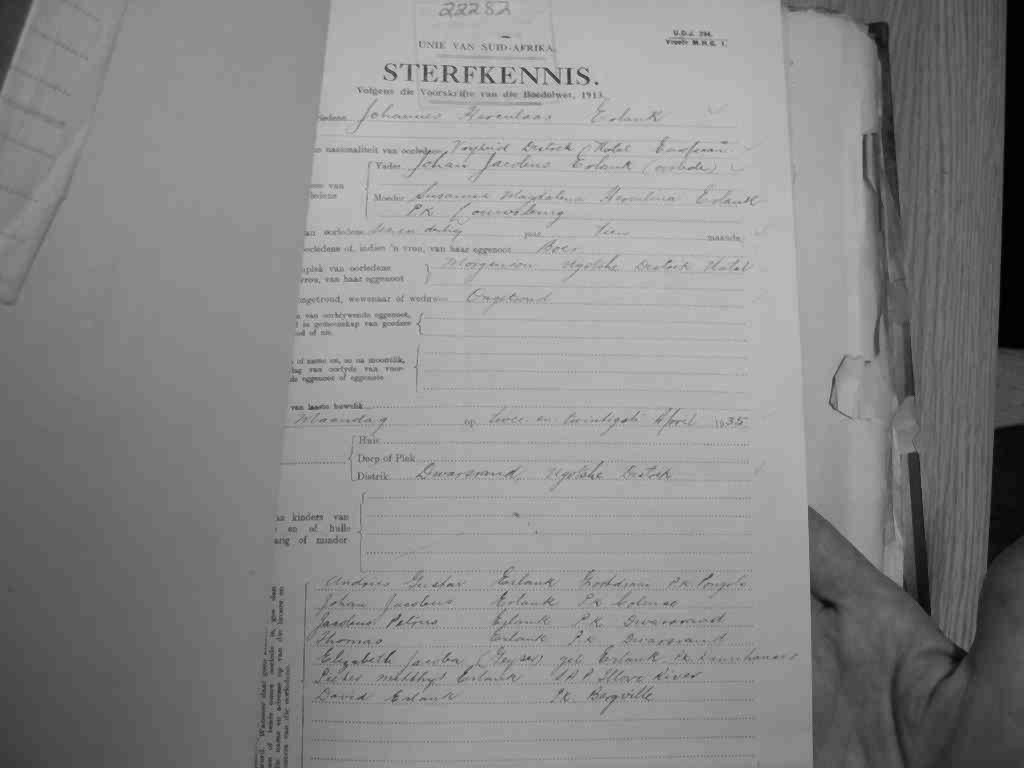 22282
U.D.J. 294.
Vroeër M.H.G. 1.
UNIE VAN SUID-AFRIKA.
STERFKENNIS.
Volgens die Voorskrifte van die Boedelwet, 1913.
Johannes Herculaas Erlank
nasionaliteit van oorledene Vryheid Destrek Natal
Vader Johan Jacobus Erlank (oorlede)
van
ledene
Moeder Susanna Magdalena Herculina Erlank
P.K. Louwsburg
oorledene sewen dertig jaar tien maande,
oorledene of, indien 'n vrou, van haar eggenoot Boer
plek van oorledene
vrou, van haar eggenoot
Morgenson Ngotshe Destrek Natal
ongetroud, wewenaar of weduwee Ongetroud
van oorblywende eggenoot,
in gemeenskap van goedere
of nie.
of name en, so na moontlik,
van oorlyde van voor-
eggenoot of eggenote
van laaste huwelik
Maandag op twee en twintigste April 1935
Huis
Dorp of Plek
Distrik Dwarsrand, Ngotshe Destrek
kinders van
en of hulle
of minder-
Andries Gustav Erlank P.K. Pongola
Johan Jacobus Erlank P.K. Colenso
Jacobus Petrus Erlank P.K. Dwarsrand
Thomas Erlank P.K. Dwarsrand
Elizabeth Jacoba (Geyser) geb. Erlank P.K.
Pieter Matthys Erlank S.A.P. Illovo River
David Erlank P.K. Bergville